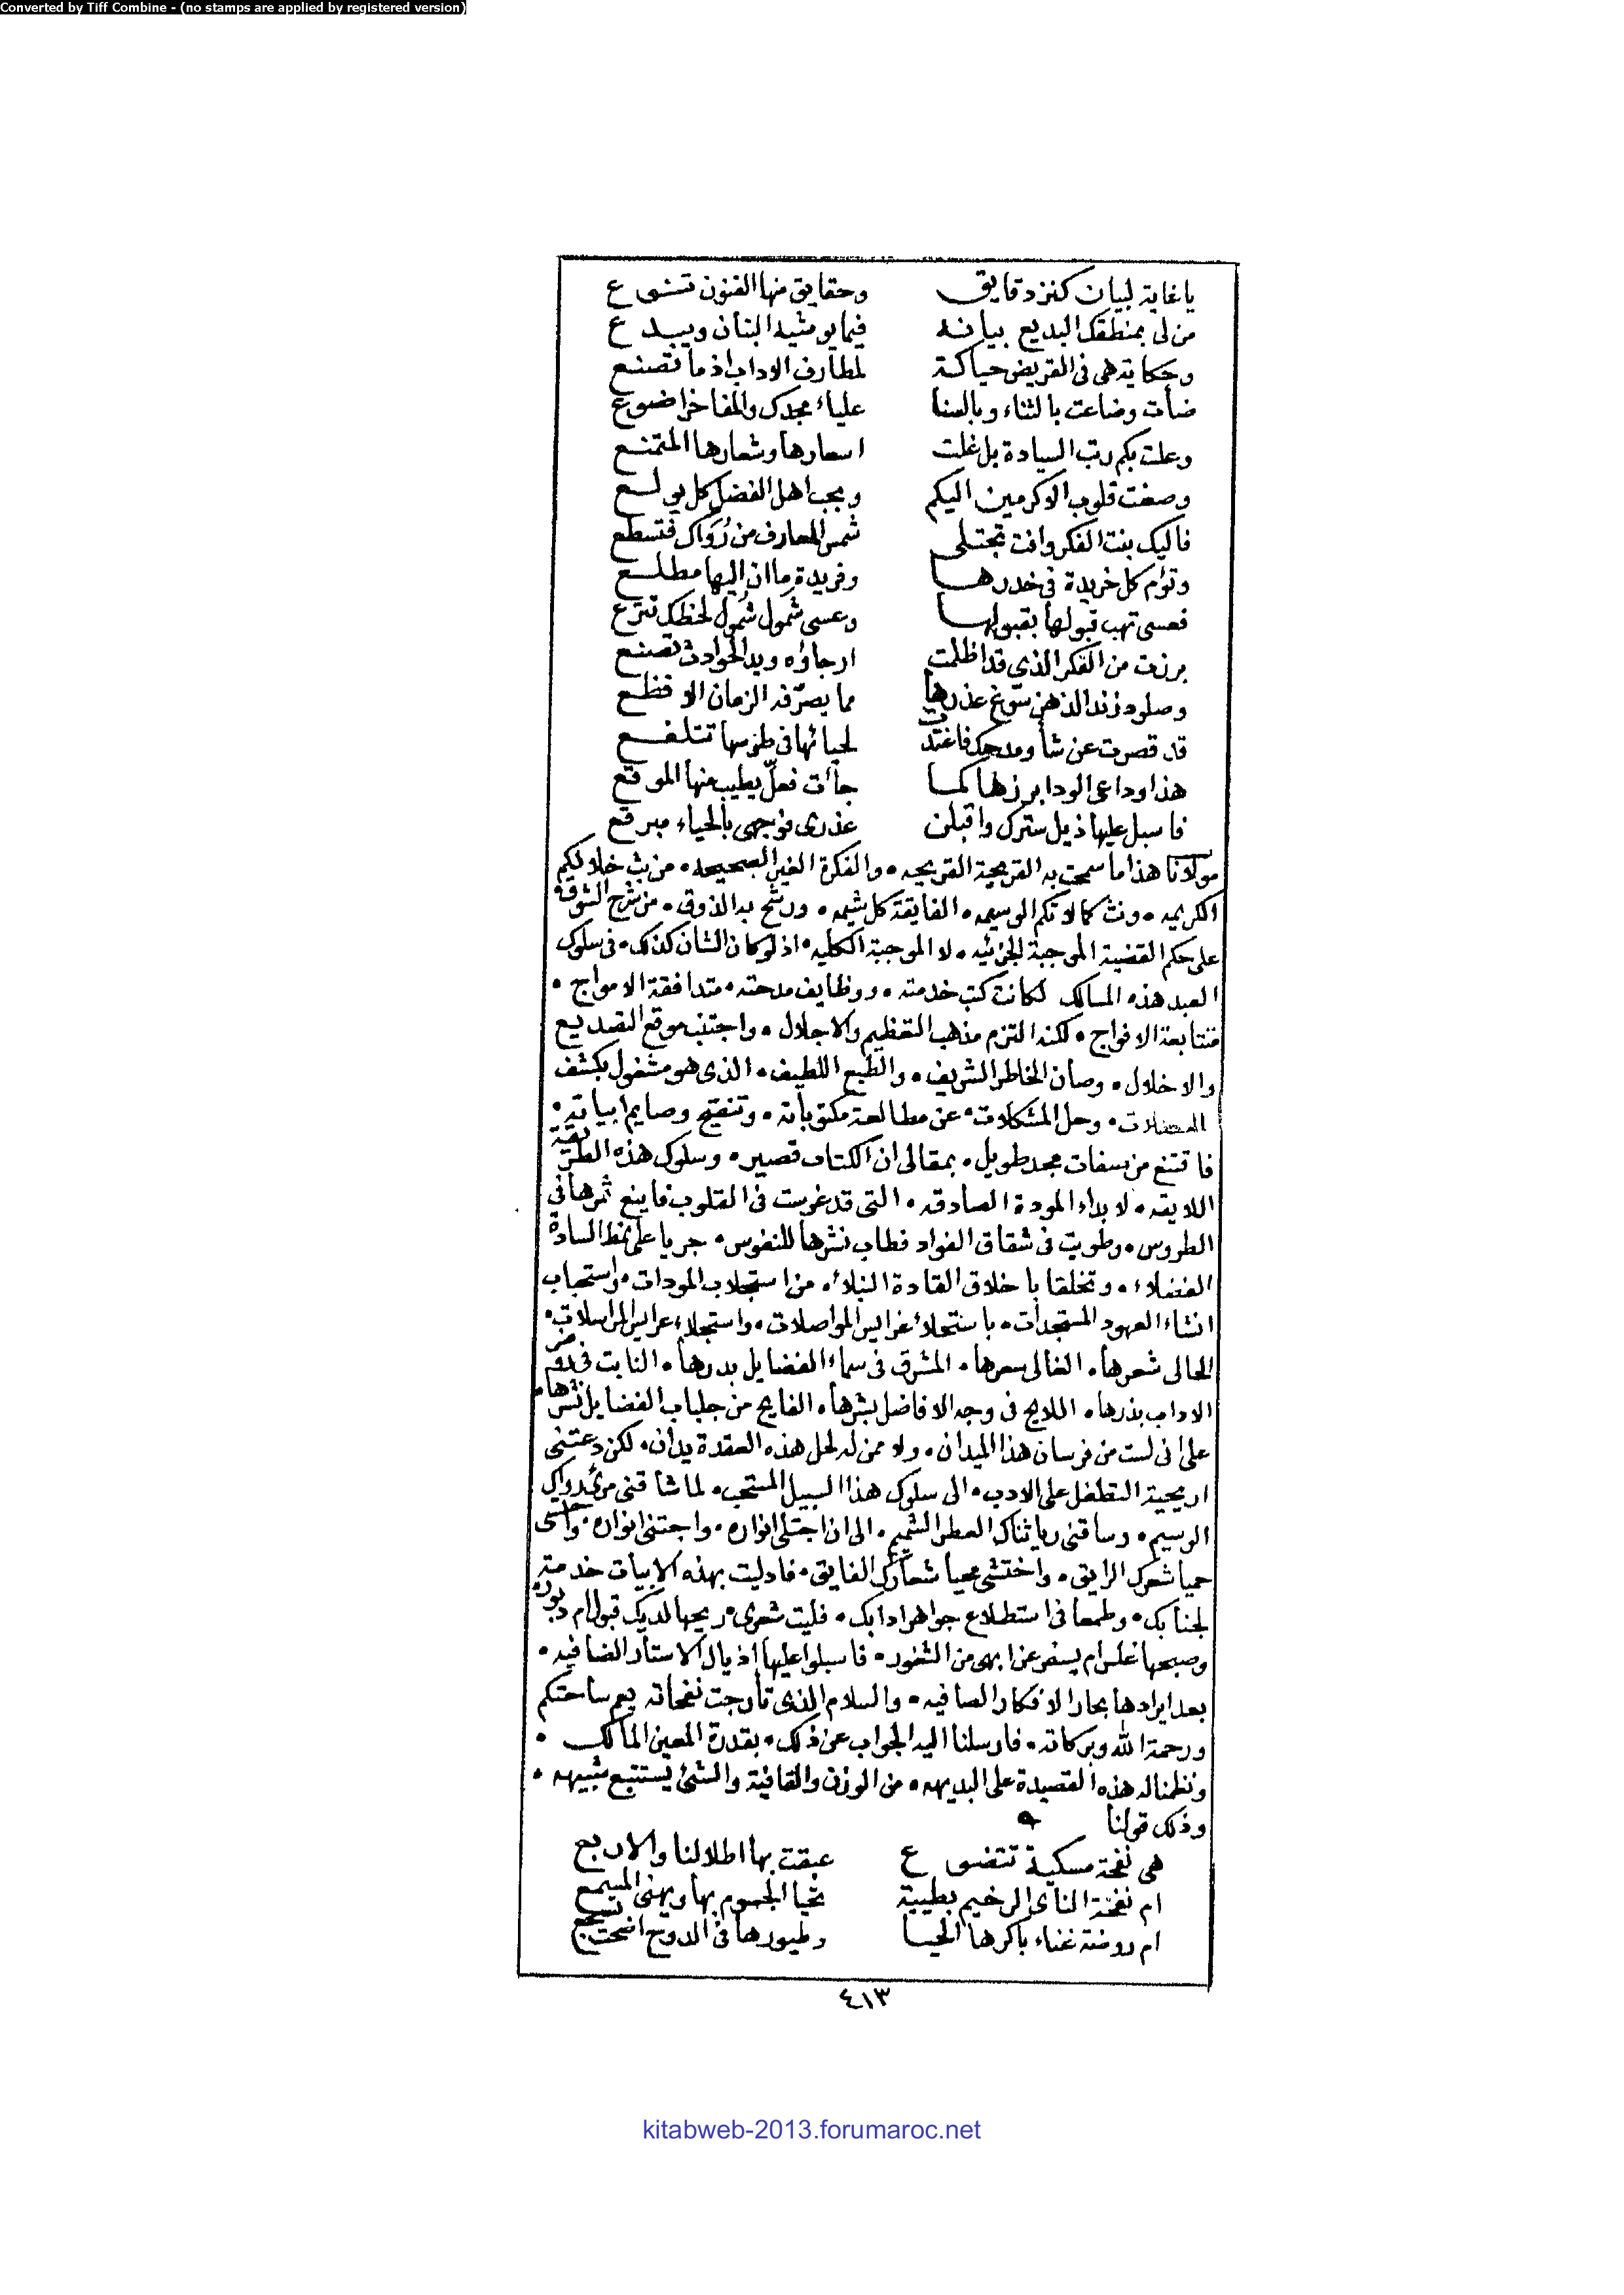 Converted by Tiff Combine - (no stamps are applied by registered version)
ياغاية لبيان كنز دقايق وحقايق منها الفنون تنوع
من لى بمنطقك البديع بيانه فيما يوشيه البنان ويبدع
وحكاية هى فى القريض حياكة لمطارف الاداب اذ ما تصنع
ضأت وضاعت بالثناء وبالسنا علياء مجدك والمفاخر اضوع
وعلت بكم رتب السيادة بل غلت اسعارها وشعارها المتمنع
وصغت قلوب الاكرمين اليكم وبحب اهل الفضل كل يولع
فاليك بنت الفكر وافت تجتلى شمس المعارف من رُوَاك فتسطع
وتؤم كل خريدة فى خدرها وفريدة ما ان اليها مطلع
فعسى تهب قبولها بقبولها وعسى شَمول شُمول لحظك تترع
برزت من الفكر الذى قد اظلمت ارجاؤه ويد الحوادث تصنع
وصلود زند الذهن سوّغ عذرها مما يصرّفه الزمان الافظع
قد قصرت عن شأو مدحك فاغتدت لحيائها فى طرسها تتلفع
هذا وداعى الود ابرزها كما جأت فعلّ يطيب منها الموقع
فاسبل عليها ذيل سترك واقبلن عذرى فوجهى بالحياء مبرقع
مولانا هذا ما سمحت به القريحية القريحيه والفكرة الغير الصحيحه من بث خلالكم
الكريمه ونث كمالاتكم الوسيمه الفايقة كل شيمه ورشح به الذوق من شرح الشوق
على حكم القضية الموجبة الجزئيه لا الموجبة الكليه اذ لو كان الشان كذلك فى سلوك
العبد هذه المسالك لكانت كتب خدمته ووظايف مدحته متدافقة الامواج
متتابعة الافواج لكنه التزم مذهب التعظيم والاجلال واجتنب موقع التصديع
والاخلال وصان الخاطر الشريف والطبع اللطيف الذى هو مشغول بكشف
المعضلات وحل المشكلات عن مطالعة مكتوباته وتنقيح وصايم ابياته
فاقتنع من سفات مجد طويل بمقالى ان الكتاب قصير وسلوك هذه الطريقة
اللايقه لابداء المودة الصادقه التى قد غرست فى القلوب فاينع ثمرها فى
الطروس وطويت فى شقاق الفواد فطاب نشرها للنفوس جريا على نمط السادة
الفضلاء وتخلقا باخلاق القادة النبلاء من استجلاب المودات واستحباب
انشاء العهود المستجدات باستحلاء غرايس المواصلات واستجلاء عرايس المراسلات
الحالى شعرها الغالى سعرها المشرق فى سماء الفضايل بدرها النابت فى روض
الاداب بذرها اللايح فى وجه الافاضل بشرها الفايح من جلباب الفضايل نشرها
على انى لست من فرسان هذا الميدان ولا ممن له لحل هذه العقدة يدان لكن دعتنى
اريحية التطفل على الادب الى سلوك هذا السبيل المستحب لما شاقنى مرئ رواك
الوسيم وساقنى ريا ثناك العطر الشميم الى ان اجتلى انواره واجتنى انواره واحتسى
حميا شعرك الرايق واختشى محيا شعارك الفايق فادليت بهذه الابيات خدمة
لجنابك وطمعا فى استطلاع جواهر ادابك فليت شعرى ريحها لديك قبول ام دبور
وصبحها غلس ام يسفر عن ابهى من الثغور فاسبلوا عليها اذيال الاستار الضافيه
بعد ايرادها بحار الافكار الصافيه والسلام الذى تأرجت نفحاته يعم ساحتكم
ورحمة الله وبركاته فارسلنا اليه الجواب عن ذلك بقدرة المعين المالك
ونظمنا له هذه القصيدة على البديهه من الوزن والقافية والشئ يستتبع شبيهه
وذلك قولنا
هى نفحة مسكية تتضوع عبقت بها اطلالنا والاربع
ام نغمة الناى الرخيم بطيبة تحيا الجسوم بها ويهنى المسمع
ام روضة غناء باكرها الحيا وطيورها فى الدوح اضحت تسجع
٤١٣
kitabweb-2013.forumaroc.net